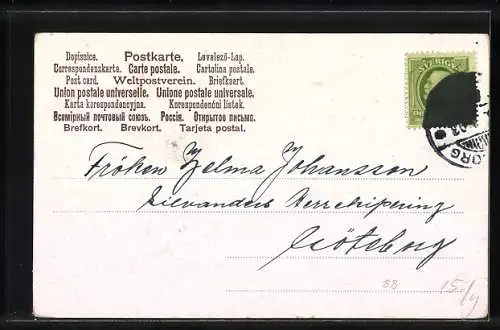 Dopisnice. Postkarte. Levelező-Lap.
Correspondenzkarte. Carte postale. Cartolina postale.
Post card. Weltpostverein. Briefkaart.
Union postale universelle. Unione postale universale.
Karta korespondencyjna. Korespondenční lístek.
Всемірный почтовый союзъ. Россія. Открытое письмо.
Brefkort. Brevkort. Tarjeta postal.
SVERIGE
Fröken Zelma Johansson
Silvanders Herrekipering
Göteborg
BB 15/4